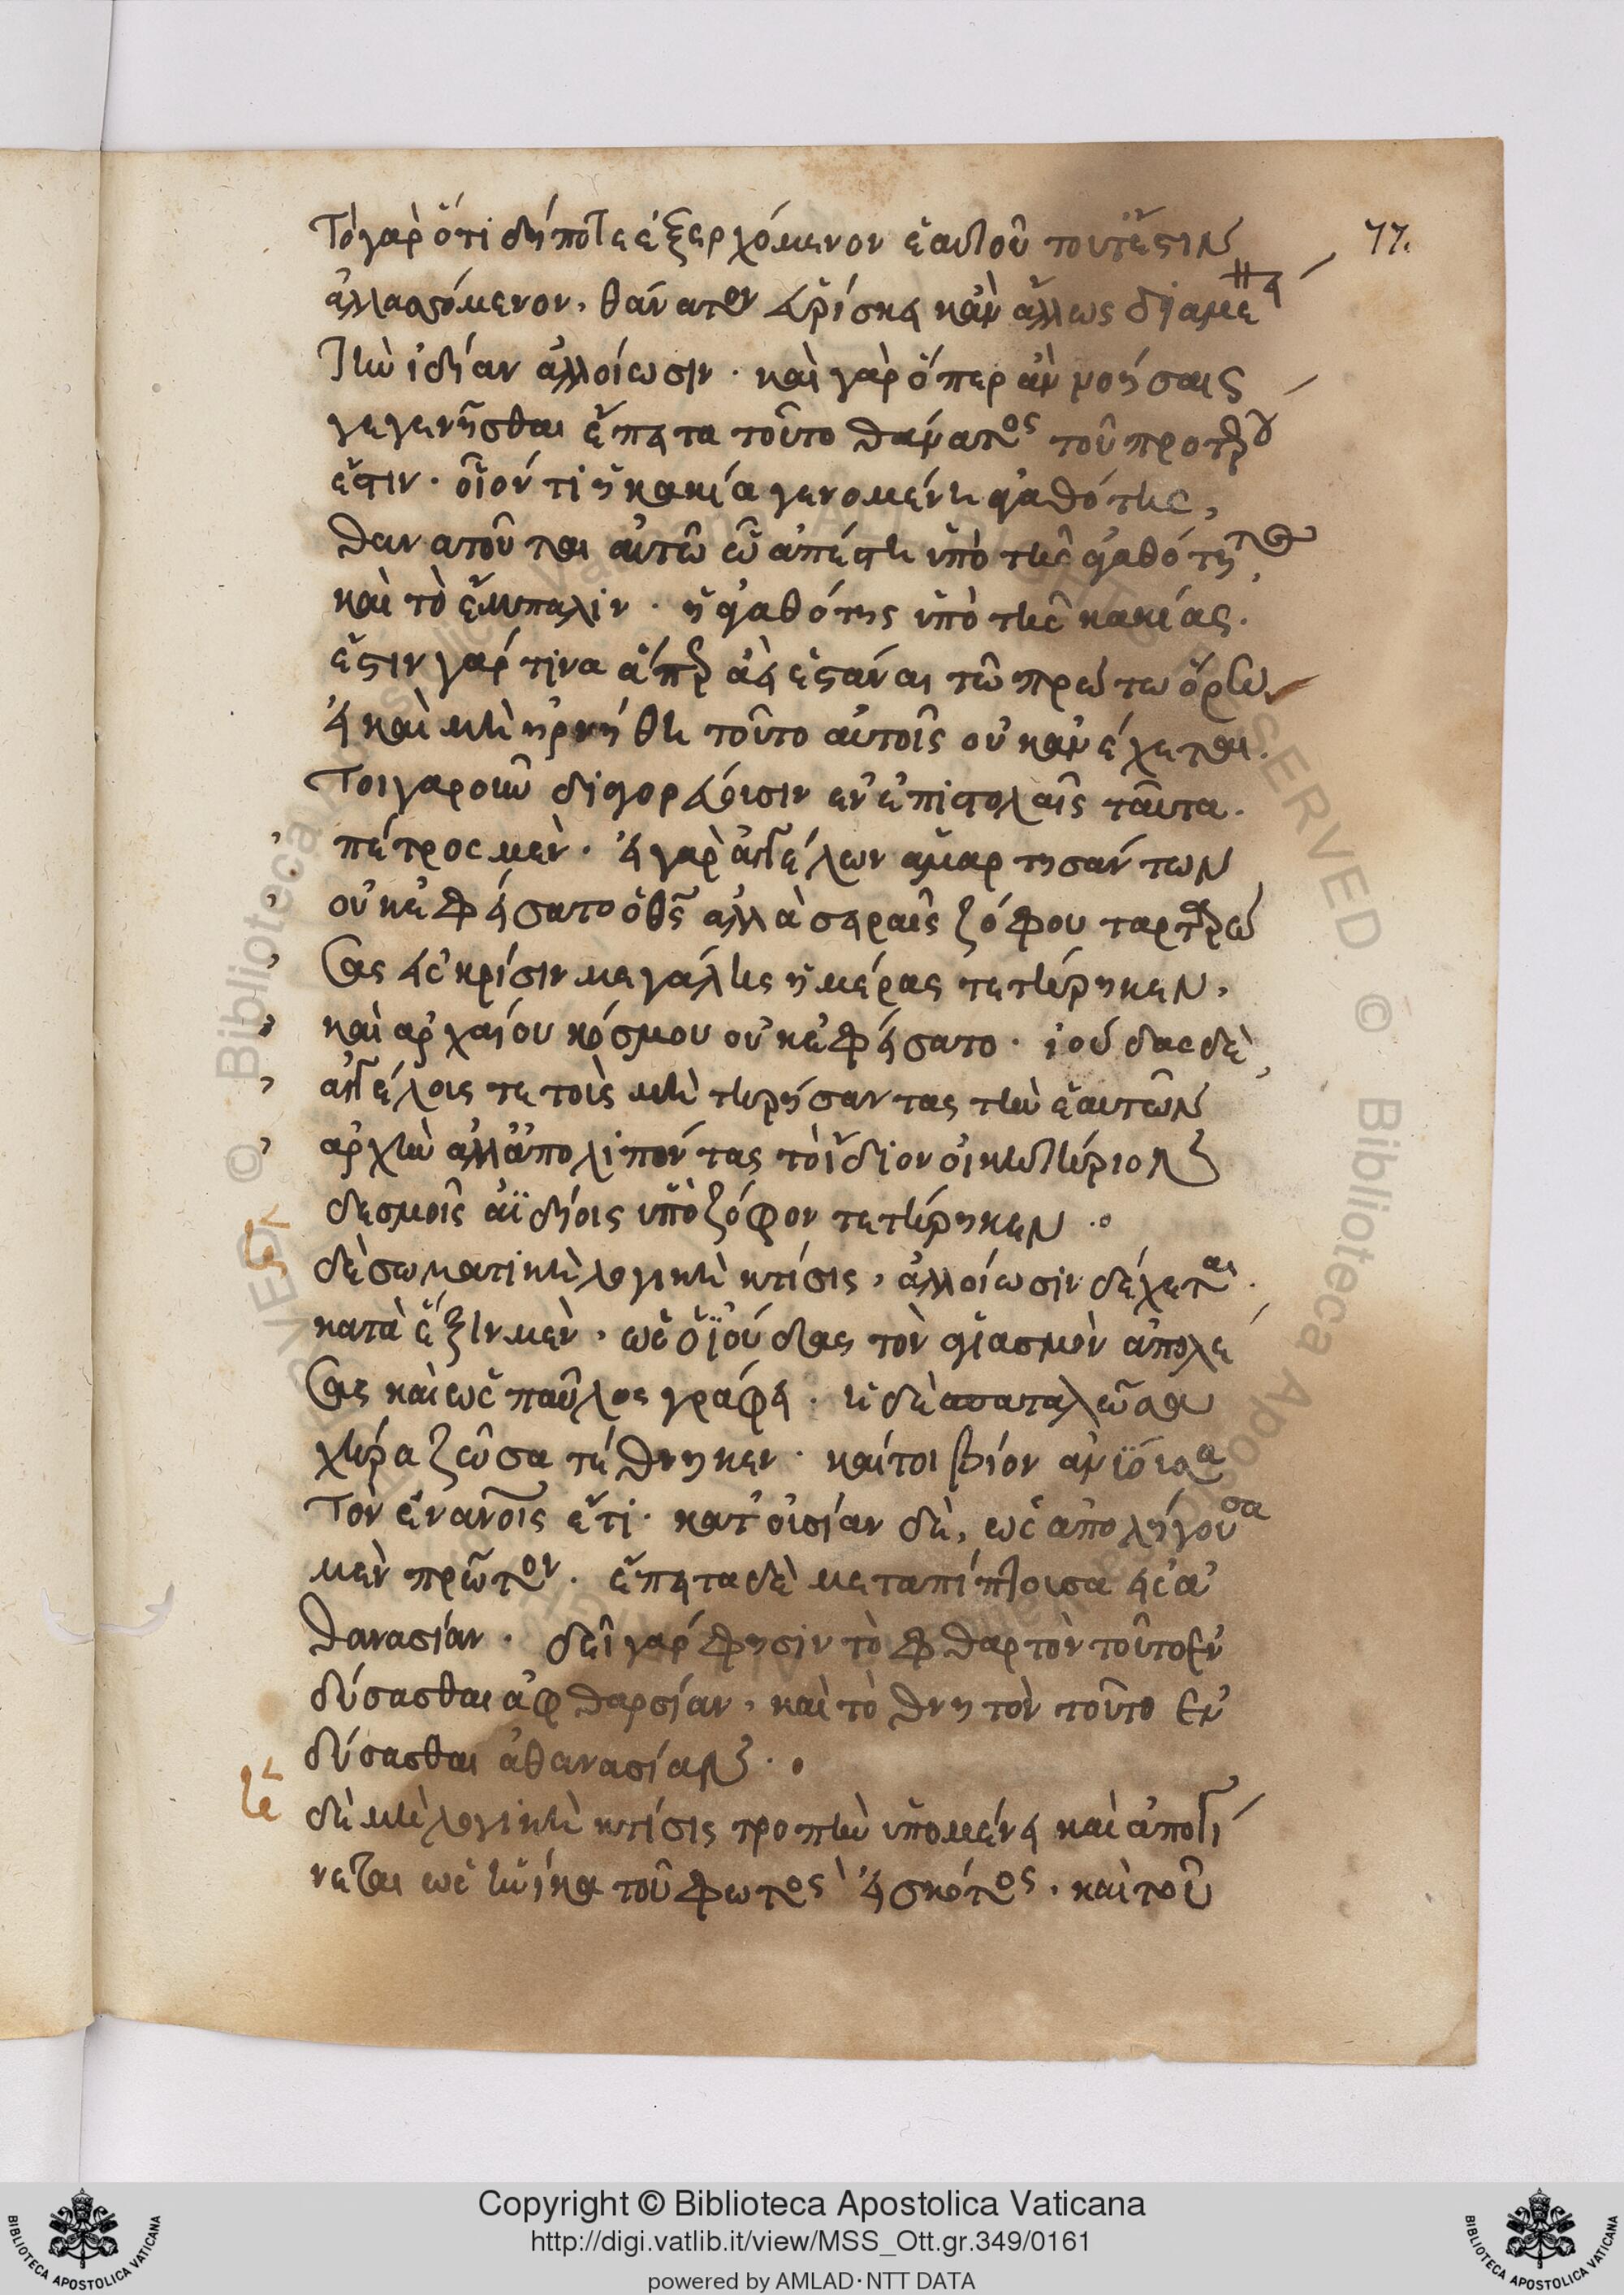 77.
Τὸ γὰρ ὅτι δήποτε ἐξερχόμενον ἑαυτοῦ τουτέστιν
ἀλλασσόμενον, θάνατον εὑρίσκει κἂν ἄλλως διαμένει
τὴν ἰδίαν ἀλλοίωσιν · καὶ γὰρ ὅπερ ἂν νοήσαις
γεγενῆσθαι ἔπειτα τοῦτο θάνατος τοῦ προτέρου
ἐστιν · οἷόν τι ἡ κακία γενομένη ἀγαθότης,
θανατοῦται αὐτῶ ὧ ἀπέστη ὑπὸ τῆς ἀγαθότητος,
καὶ τὸ ἔμπαλιν · ἡ ἀγαθότης ὑπὸ τῆς κακίας.
ἔστιν γάρ τινα ἅπερ ἀεὶ ἑστάναι τῶ πρώτω ὅρω
εἰ καὶ μὴ ἠρνήθη τοῦτο αὐτοῖς οὐκ ἀνέχεται.
Τοιγαροῦν διαγορεύουσιν ἐν ἐπιστολαῖς ταῦτα.
πέτρος μὲν · εἰ γὰρ ἀγγέλων ἁμαρτησάντων
οὐκ ἐφείσατο ὁ θς ἀλλὰ σειραῖς ζόφου ταρταρώ
σας εἰς κρίσιν μεγάλης ἡμέρας τετήρηκεν,
καὶ ἀρχαίου κόσμου οὐκ ἐφείσατο · ἰούδας δὲ,
ἀγγέλους τε τοὺς μὴ τηρήσαντας τὴν ἑαυτῶν
ἀρχὴν ἀλλ' ἀπολιπόντας τὸ ἴδιον οἰκητήριον
δεσμοῖς ἀϊδίοις ὑπὸ ζόφον τετήρηκεν ··
δὲ σωματικὴ λογικὴ κτίσις, ἀλλοίωσιν δέχεται.
κατὰ ἕξιν μὲν, ὡς ὁ ἰούδας τὸν ἁγιασμὸν ἀπολέ
σας καὶ ὡς παῦλος γράφει · ἡ δὲ ασαταλῶσα
χήρα ζῶσα τέθνηκεν · καίτοι βίον ἀνύουσα
τὸν ἐν ἀνοις ἔτι · κατ' οὐσίαν δὲ, ὡς ἀπολήγουσα
μὲν πρῶτον · ἔπειτα δὲ μεταπίπτουσα εἰς ἀ
θανασίαν · δεῖ γάρ φησιν τὸ φθαρτὸν τοῦτο ἐν
δύσασθαι ἀφθαρσίαν, καὶ τὸ θνητὸν τοῦτο ἐν
δύσασθαι ἀθανασίαν ··
δὲ μὴ λογικὴ κτίσις τροπὴν ὑπομένει καὶ ἀπογί
νεται ὡς ἡνίκα τοῦ φωτὸς εἰ σκότος, καὶ τοῦ
Copyright © Biblioteca Apostolica Vaticana
http://digi.vatlib.it/view/MSS_Ott.gr.349/0161
powered by AMLAD·NTT DATA
BIBLIOTECA APOSTOLICA VATICANA
BIBLIOTECA APOSTOLICA VATICANA